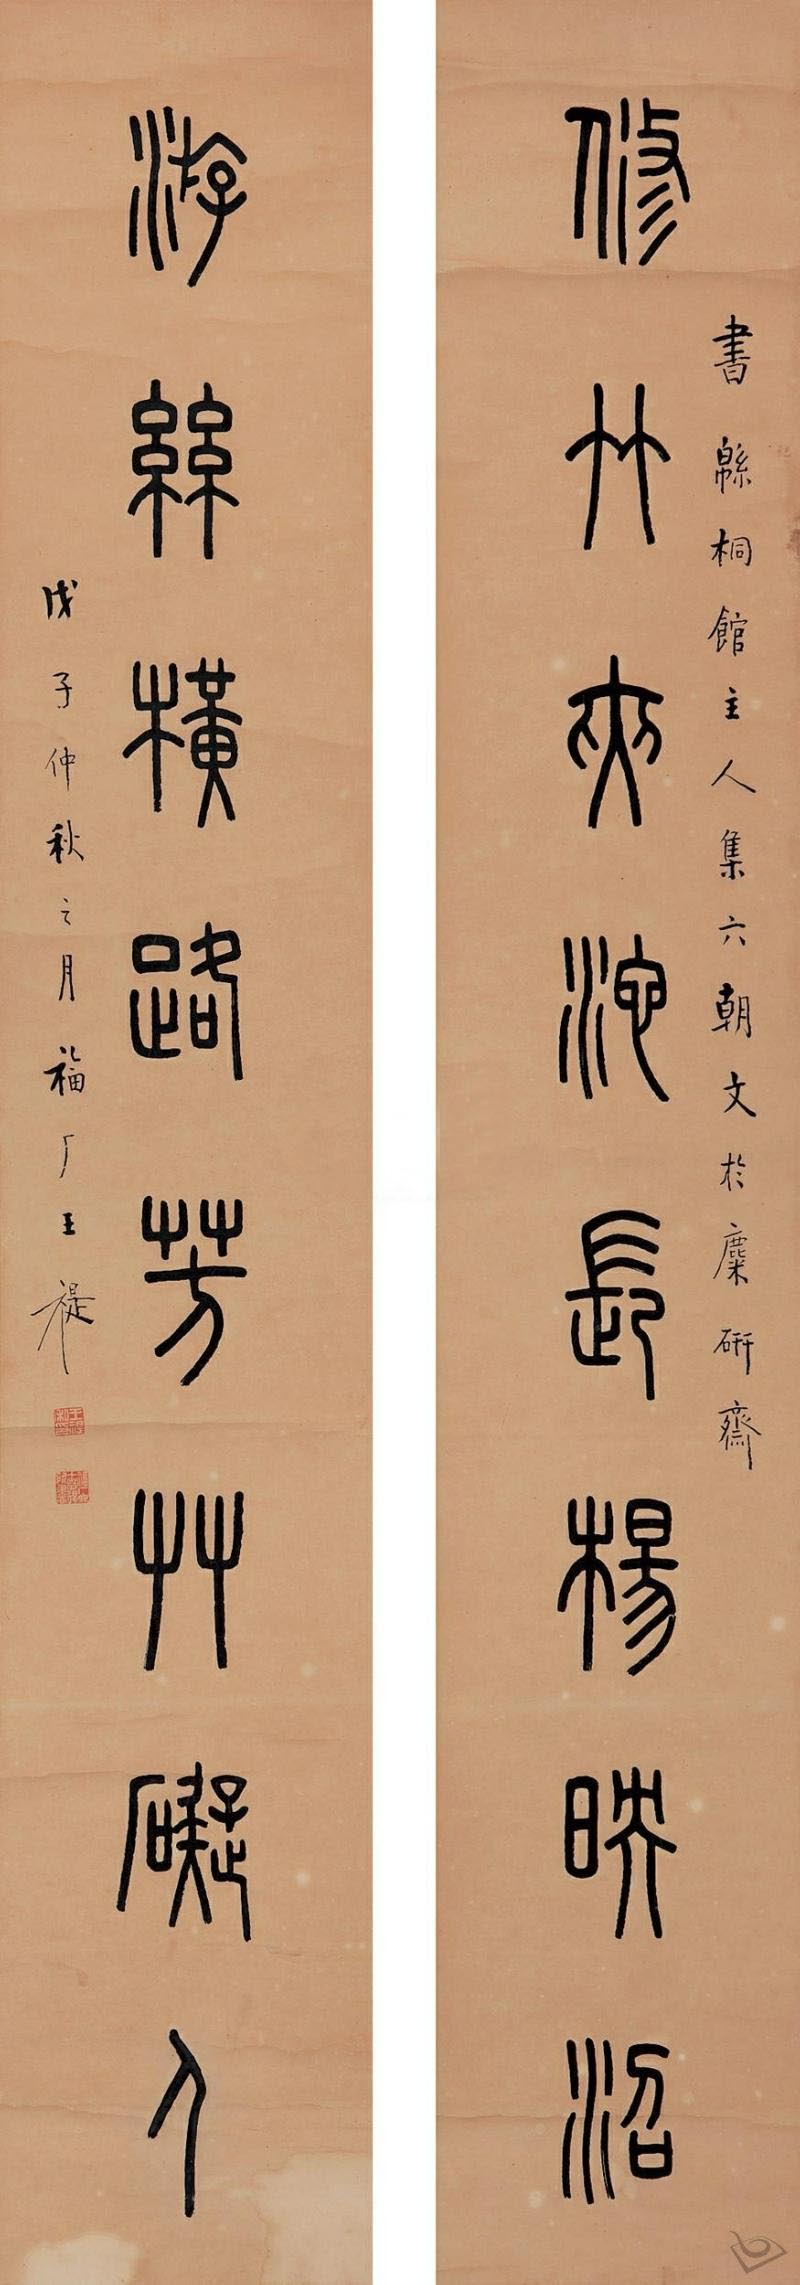 修竹夾池長楊映沼
書緜桐館主人集六朝文於麋研齋
游絲橫路芳艸礙人
戊子仲秋之月福厂王禔